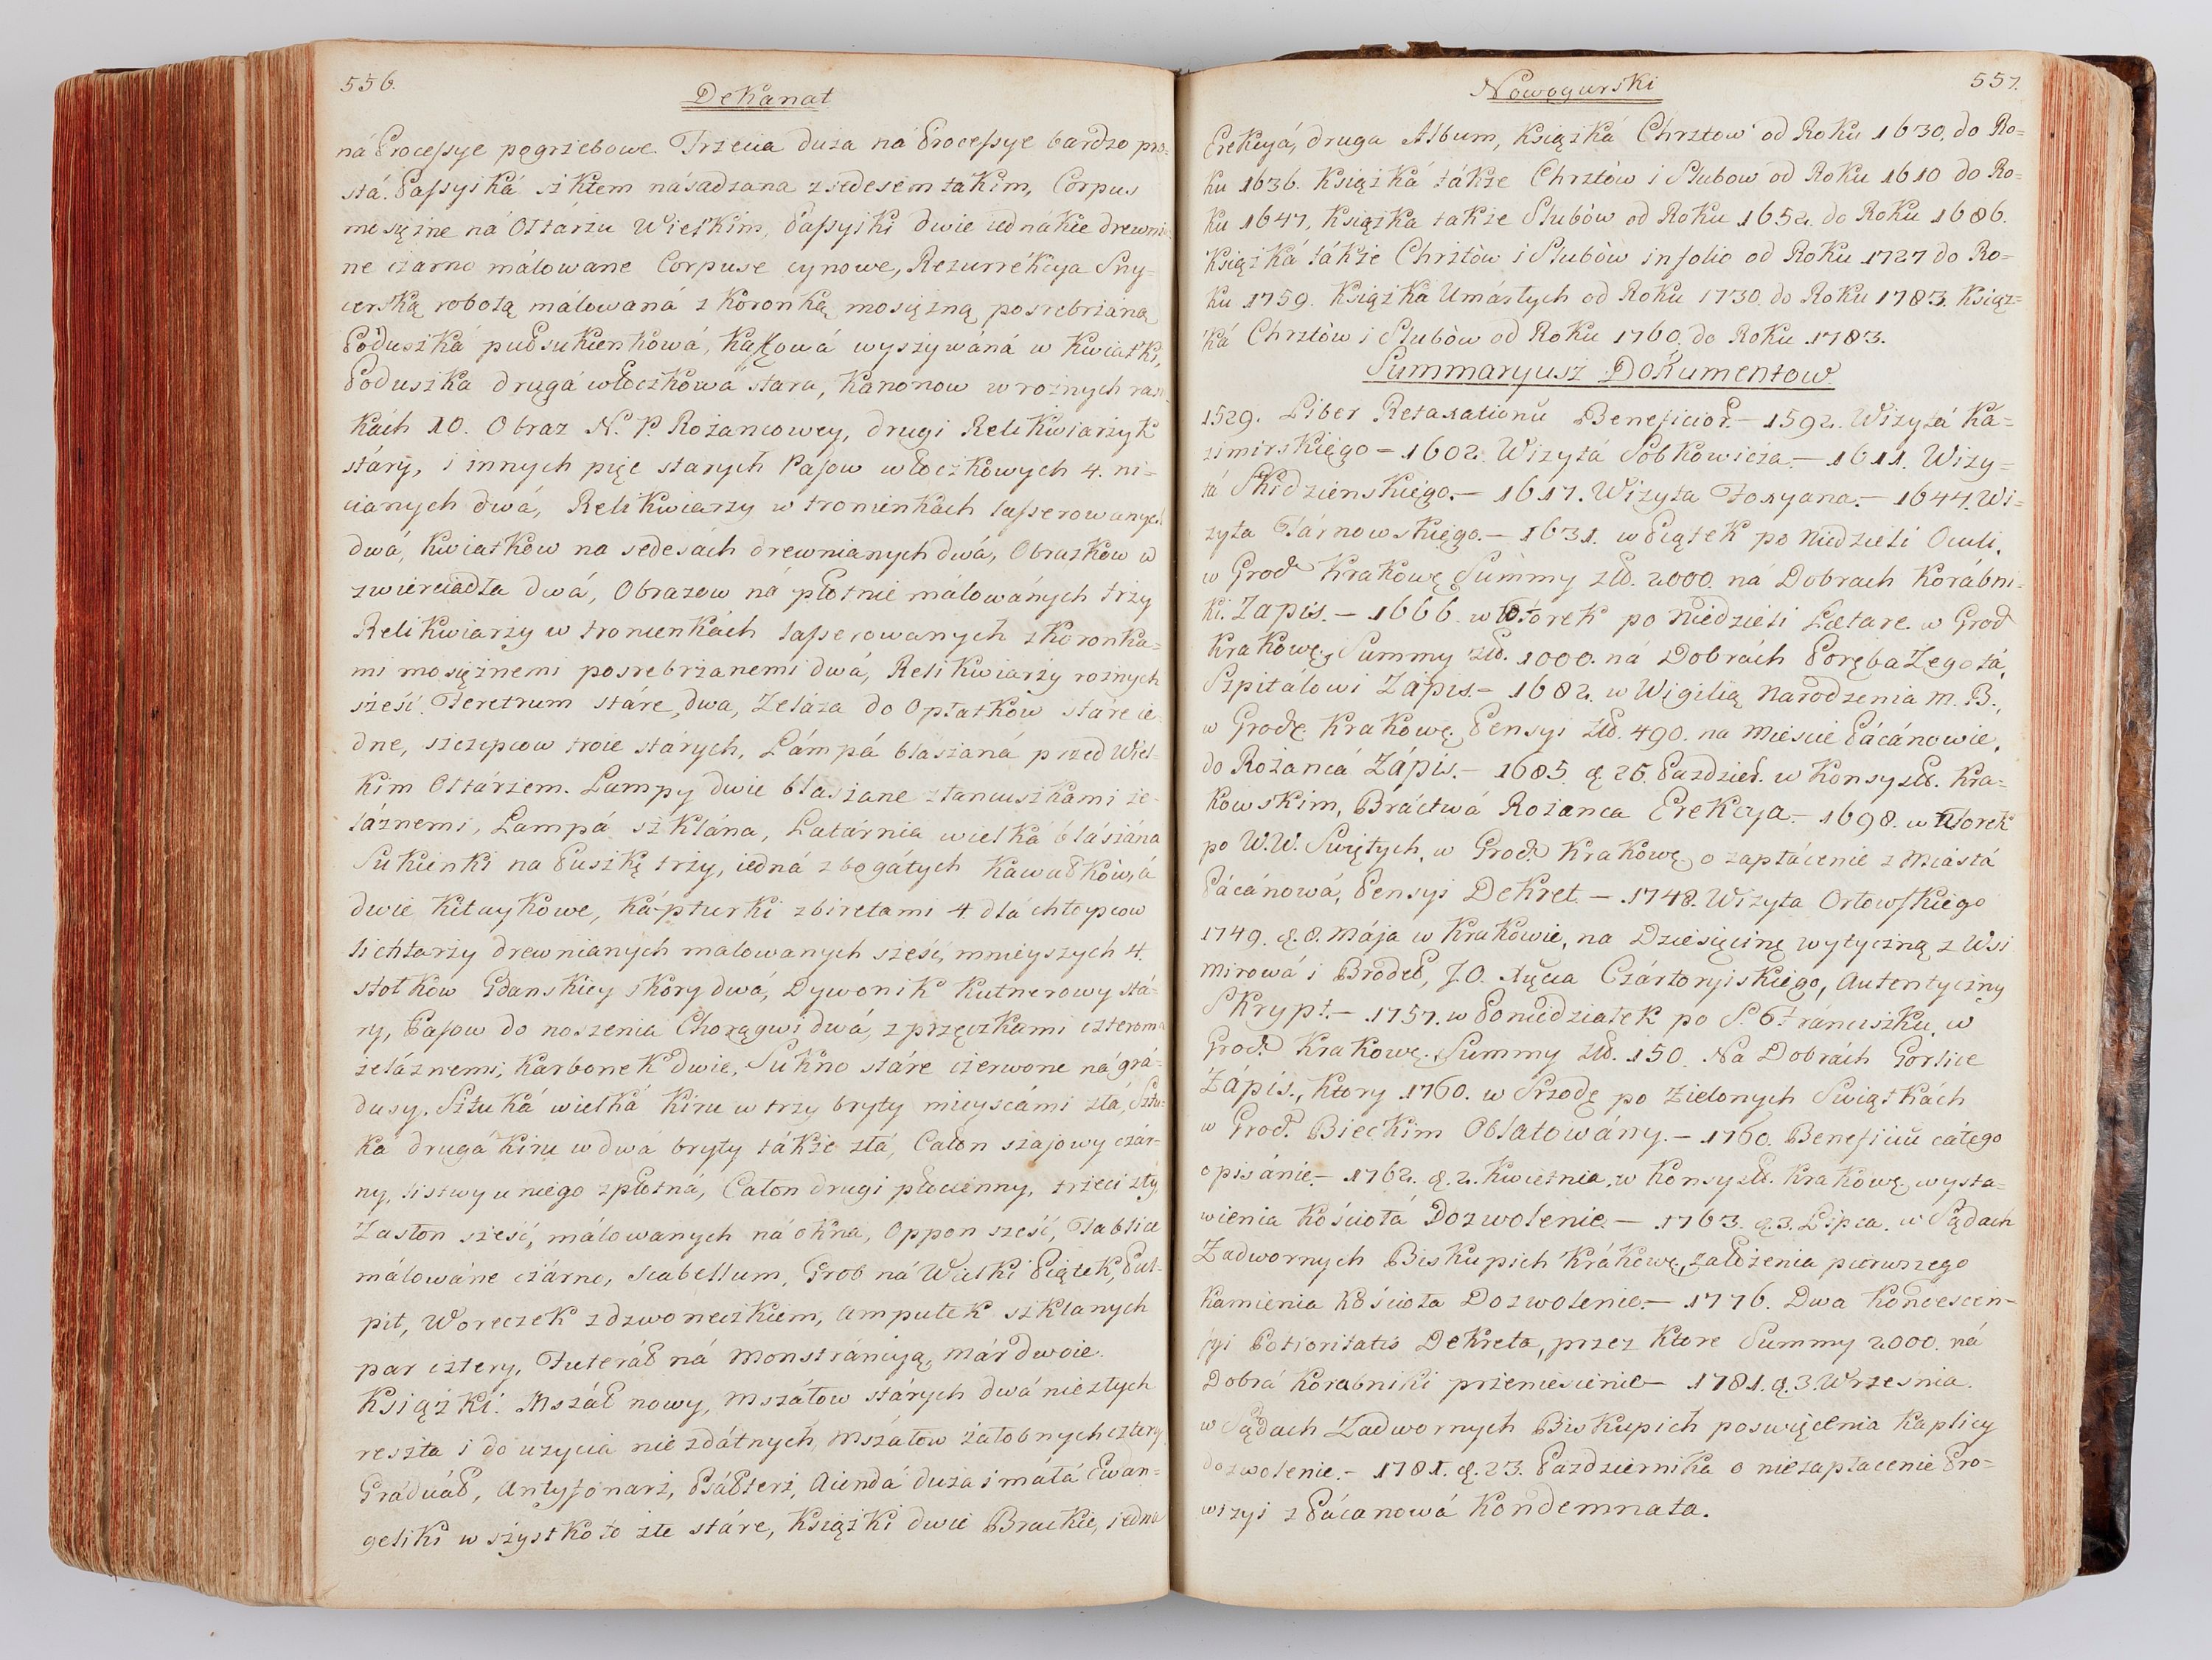 556.
Dekanat
ná Processye pogrzebowe. Trzecia duza ná Processye bardzo pro=
stá. Passyiká szkłem násadzana z sedesem takim, Corpus
mosięzne ná Ołtarzu Wielkim, Passyiki dwie iednákie drewnia
ne czarno málowane Corpuse cynowe, Rezurrekcya Sny=
cerską robotą málowaná z Koronką mosięzną posrebrzaną
Poduszká pułsukienkowá, wyszywáná w Kwiatki,
Poduszka drugá włoczkowa stara, Kanonow w roznych ram
kách 10. Obraz N. P. Rozancowey, drugi Relikwiarzyk
stáry, i innych pięc starych Pasow włoczkowych 4. ni=
cianych dwá, Relikwiarzy w tronienkach lasserowanych
dwá, Kwiatkow na sedesách drewnianych dwá, Obrazkow w
zwierciadła dwá, Obrazow ná płotnie málowánych trzy
Relikwiarzy w tronienkách lasserowanych z Koronka=
mi mosięznemi posrebrzanemi dwá, Relikwiarzy roznych
szesć. Feretrum stáre, dwa, Zelaza do Opłatkow stáre ie=
dne, szczepcow troie stárych, Lámpá blaszaná przed Wiel=
kim Ołtárzem. Lampy dwie blaszane z łancuszkami ze=
láznemi, Lampá szklána, Latárnia wielká blászána
Sukienki na Puszkę trzy, iedná z bogátych Kawałków, á
dwie Kitaykowe, Kápturki z biretami 4. dlá chłopcow
lichtarzy drewnianych malowanych szesć, mnieyszych 4.
stołkow Gdanskiey skory dwá, Dywonik Kutnerowy stá=
ry, Pasow do noszenia Chorągwi dwá, z przęczkami czterema
zeláznemi, Karbonek dwie, Sukno stáre czerwone ná grá=
dusy. Sztuká wielká Kiru w trzy bryty mieyscámi złá, Sztu=
ká drugá Kiru w dwá bryty tákze złá, Całon szajowy czár=
ny, listwy u niego z płotná, Całon drugi płocienny, trzeci zły,
Zasłon szesć, málowanych ná okna, Oppon szesć, Tablice
málowáne czárno, Scabellum, Grob ná Wielki Piątek, Pul=
pit, Woreczek z dzwoneczkiem, Ampułek szklanych
par cztery, Futerał ná Monstráncyą, már dwoie.
Książki. Mszał nowy, Mszáłow stárych dwá niezłych
reszta i do uzycia niezdátnych, Mszáłow załobnych cztery
Gráduáł, Antyfonarz, Psáłterz, Aiendá duza i máłá Ewan=
geliki wszystko to złe stáre, Książki dwie Brackie, iedna
Nowogurski
557.
Erekcyá, druga Album, Książká Chrztow od Roku 1630. do Ro=
ku 1636. Książká tákze Chrztów i Slubow od Roku 1610 do Ro=
ku 1647, Książka takze Slubów od Roku 1652. do Roku 1686.
Książká tákże Chrztòw i Slubòw in folio od Roku 1727 do Ro=
ku 1759. Książka Umárłych od Roku 1730. do Roku 1783. Książ=
ká Chrztòw i Slubòw od Roku 1760. do Roku 1783.
Summaryusz Dokumentow.
1529. Liber Retaxationũ Beneficior.– 1592. Wizytá Ka=
zimirskiego – 1602. Wizytá Sobkowicza.– 1611. Wizy=
tá Skidzienskiego.– 1617. Wizyta Foxyana.– 1644. Wi=
zyta Tárnowskiego.– 1631. w Piątek po Niedzieli Oculi,
w Grod Krakowę Summy złł. 2000. ná Dobrach Korábni=
ki. Zapis.– 1666. w Wtorek po Niedzieli Lætare. w Grod
Krakowę, Summy złł. 1000. ná Dobrách Poręba Zegotá,
Szpitálowi Zápis.– 1682. w Wigilią Narodzenia M. B.,
w Grodę Krakowę. Pensyi złł. 490. na Miescie Pácánowie,
do Rożancá Zápis.– 1685. d. 26. Pazdzier. w Konsyst. Kra=
kowskim, Bráctwá Rożanca Erekcya.– 1698. w Wtorek
po W.W. Swiętych, w Grod. Krakowę, o zapłácenie z Miástá
Pácánowá, Pensyi Dekret.– 1748. Wizyta Orłowskiego
1749. d. 8. Mája w Krakowie, na Dziesięcinę wytyczną z Wsi
Mirowá i Brodeł, J.O. Xięcia Czártoryiskiego, Autentyczny
Skrypt.– 1757. w Poniedziałek po S. Fránciszku, w
Grod. Krakowę. Summy złł. 150. Na Dobrách Gorlice
Zápis., ktory 1760. w Srzodę po Zielonych Swiątkách
w Grod. Bieckim Oblatowány.– 1760. Beneficiũ cáłego
opisánie.– 1762. d. 2. Kwietnia, w Konsyst. Krakowę, wysta=
wienia Kościoła Dozwolenie – 1763. d. 3. Lipca. w Sądach
Zadwornych Biskupich Krákowę, założenia pierwszego
Kamienia Kościoła Dozwolenie.– 1776. Dwa Kondescen=
syi Potioritatis Dekreta, przez Ktore Summy 2000. ná
Dobrá Korabniki przeniesienie – 1781. d. 3. Wrzesnia.
w Sądach Zadwornych Biskupich poswięcenia Kaplicy
dozwolenie.– 1781. d. 23. Pazdziernika o niezapłacenie Pro=
wizyi z Pácanowá Kondemnata.